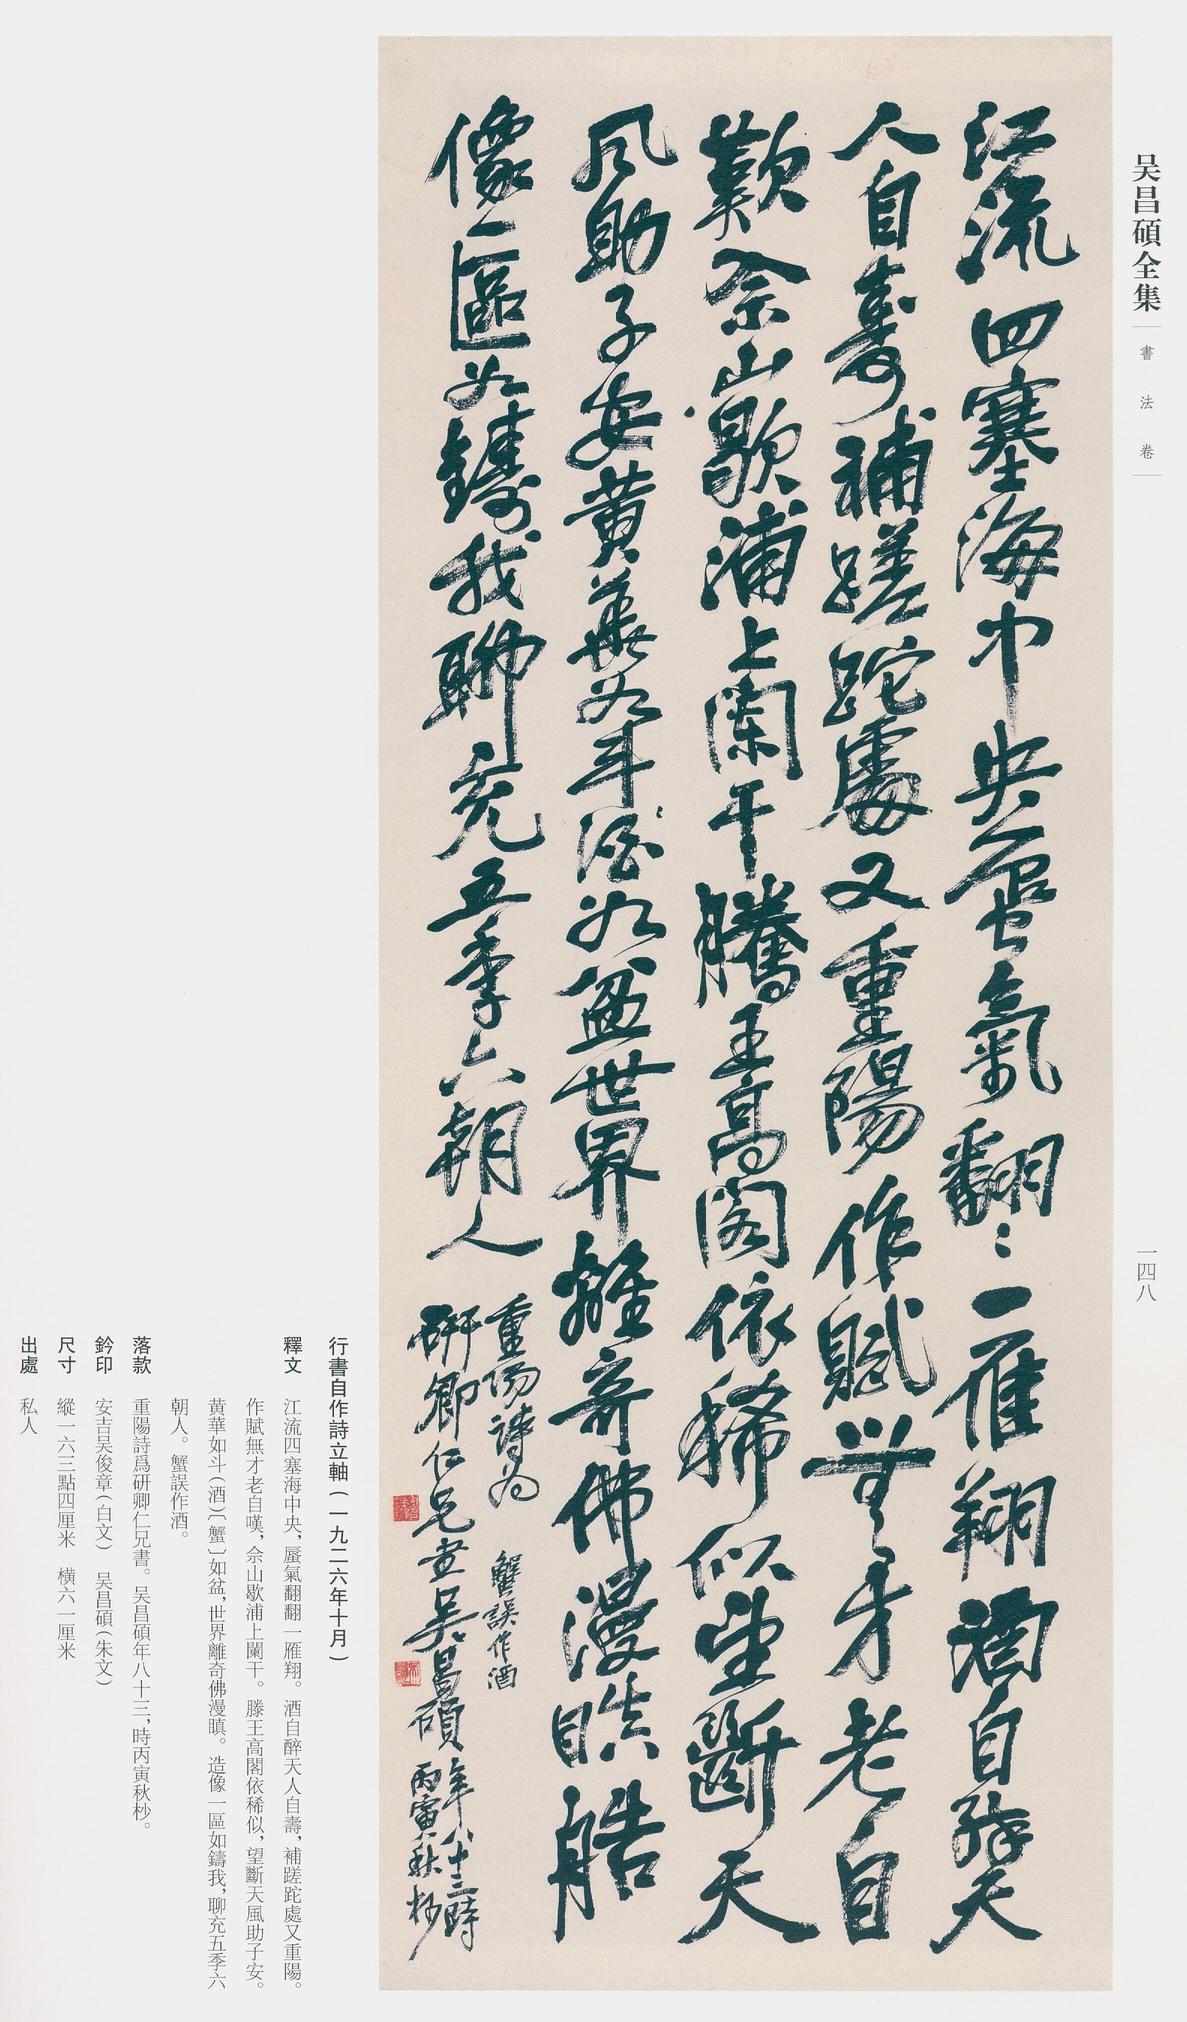 吴昌碩全集
書法卷
一四八
江流四塞海中央蜃氣翻〻一雁翔酒自醉天
人自壽補蹉跎處又重陽作賦無才老自
歎佘山歇浦上闌干騰王高閣依稀似望斷天
風助子安黄華如斗酒如盆世界離奇佛漫瞋艁
像一區如鑄我聊充五季六朝人
重陽詩為
蟹誤作酒
研卿仁兄書吴昌碩年八十三時
丙寅秋杪
行書自作詩立軸(一九二六年十月)
釋文 江流四塞海中央，蜃氣翻翻一雁翔。酒自醉天人自壽，補蹉跎處又重陽。
作賦無才老自嘆，佘山歇浦上闌干。滕王高閣依稀似，望斷天風助子安。
黄華如斗(酒)〔蟹〕如盆，世界離奇佛漫瞋。造像一區如鑄我，聊充五季六
朝人。蟹誤作酒。
落款 重陽詩爲研卿仁兄書。吴昌碩年八十三，時丙寅秋杪。
鈐印 安吉吴俊章(白文) 吴昌碩(朱文)
尺寸 縱一六三點四厘米 横六一厘米
出處 私人